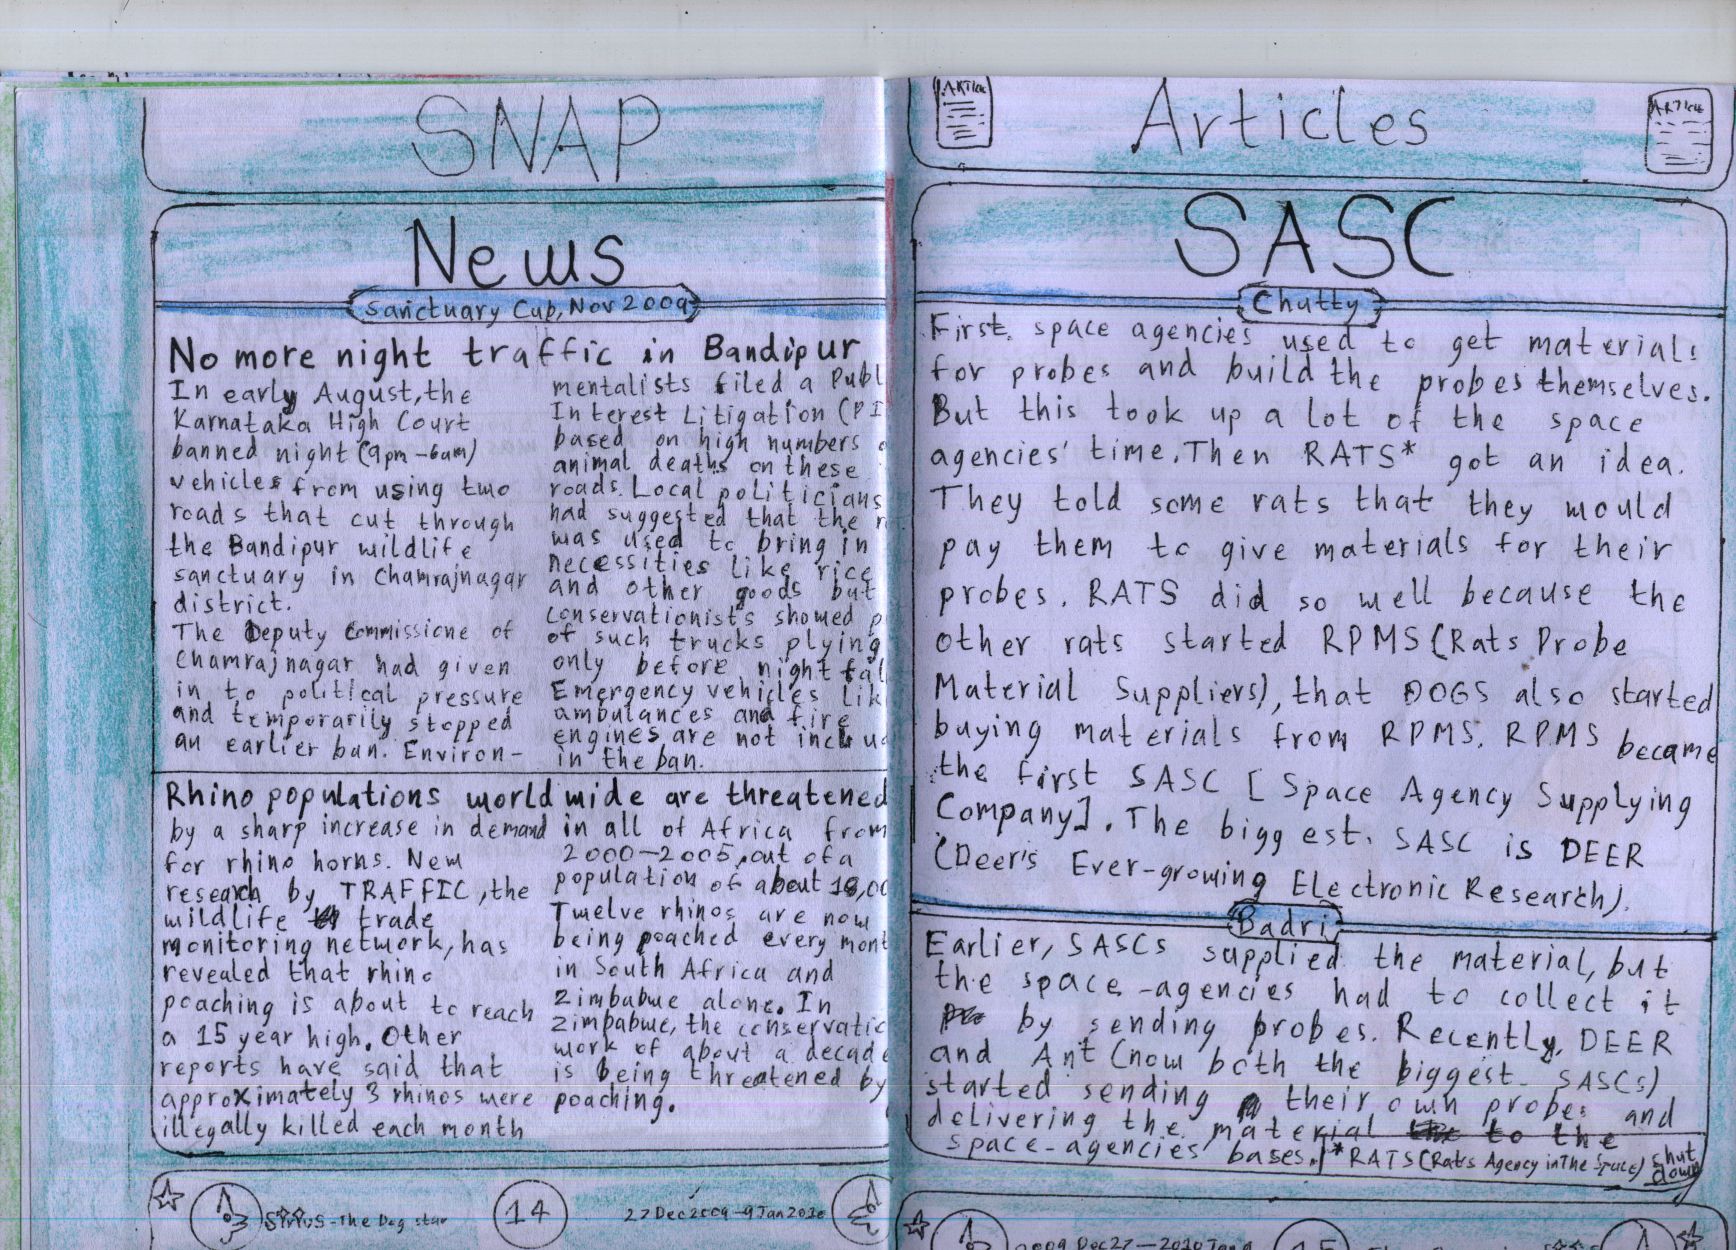 SNAP
News
Sanctuary Cub, Nov 2009
No more night traffic in Bandipur
In early August, the
Karnataka High Court
banned night (9pm-6am)
vehicles from using two
roads that cut through
the Bandipur wildlife
sanctuary in Chamrajnagar
district.
The Deputy Commissione of
Chamrajnagar had given
in to political pressure
and temporarily stopped
an earlier ban. Environ-
mentalists filed a Publ
Interest Litigation (PI
based on high numbers
animal deaths on these
roads. Local politicians
had suggested that the
was used to bring in
necessities like rice
and other goods but
conservationists showed
of such trucks plying
only before night fal
Emergency vehicles lik
ambulances and fire
engines are not includ
in the ban.
Rhino populations world wide are threatened
by a sharp increase in demand
for rhino horns. New
research by TRAFFIC, the
wildlife trade
monitoring network, has
revealed that rhino
poaching is about to reach
a 15 year high. Other
reports have said that
approximately 3 rhinos were
illegally killed each month
in all of Africa from
2000-2005, out of a
population of about 18,00
Twelve rhinos are now
being poached every mont
in South Africa and
Zimbabwe alone. In
Zimbabwe, the conservatio
work of about a decade
is being threatened by
poaching.
Sirius-The Dog star
14
27Dec2009-9Jan2010
ARTICLE
Articles
ARTICLE
SASC
Chutty
First, space agencies used to get materials
for probes and build the probes themselves.
But this took up a lot of the space
agencies' time. Then RATS* got an idea.
They told some rats that they would
pay them to give materials for their
probes. RATS did so well because the
other rats started RPMS (Rats Probe
Material Suppliers), that DOGS also started
buying materials from RPMS. RPMS became
the first SASC [Space Agency Supplying
Company]. The biggest. SASC is DEER
(Deer's Ever-growing Electronic Research).
Badri
Earlier, SASCs supplied the material, but
the space-agencies had to collect it
by sending probes. Recently, DEER
and Ant (now both the biggest SASCs)
started sending their own probes and
delivering the material to the
space-agencies' bases.
*RATS (Rats Agency in The Space) shut
down
2009 Dec27-2010 Jan9
15